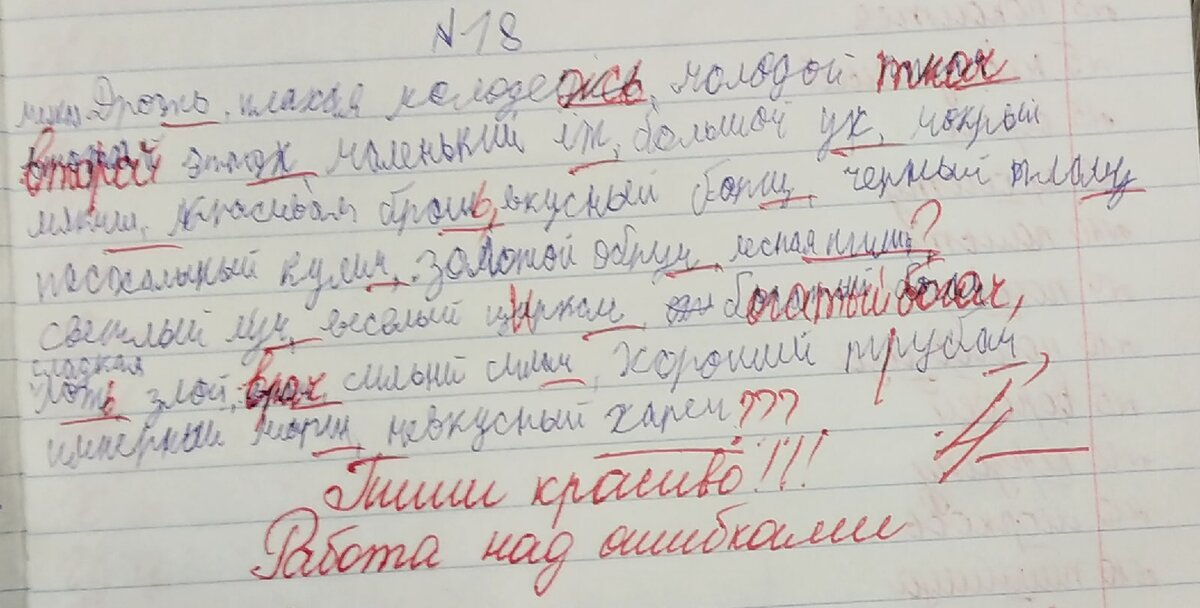 N 18
дрожь, плахая молодежь, молодой ткач
второй этаж маленький ёж, большой уж, мокрый
макиш, красивая брошь, вкусный борщ, черный плащ
пасхальный кулич, золотой обруч, лесная ?
светлый луч, веселый циркач, богатый богач,
сладкая
ложь злой, врач, силный силач, хороший трубач,
имперный невкусный харч???
4-
Пиши красиво!!!
Работа над ошибками